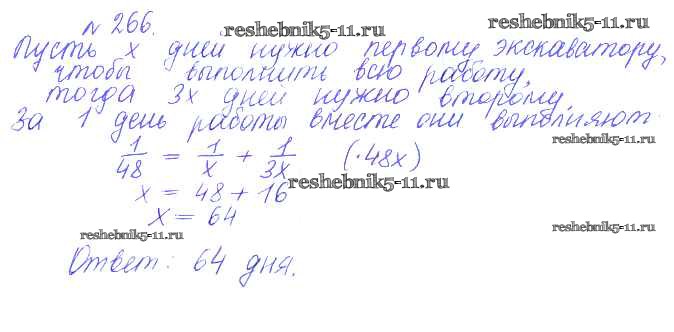 № 266. reshebnik5-11.ru reshebnik5-11.ru
Пусть x дней нужно первому экскаватору,
чтобы выполнить всю работу,
тогда 3x дней нужно второму.
За 1 день работы вместе они выполняют:
reshebnik5-11.ru 1/48 = 1/x + 1/3x (·48x) reshebnik5-11.ru
x = 48 + 16 reshebnik5-11.ru
x = 64
reshebnik5-11.ru reshebnik5-11.ru
Ответ: 64 дня.